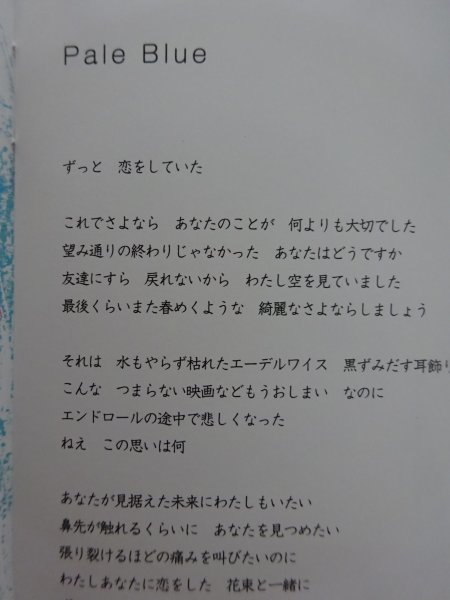 Pale Blue
ずっと　恋をしていた
これでさよなら　あなたのことが　何よりも大切でした
望み通りの終わりじゃなかった　あなたはどうですか
友達にすら　戻れないから　わたし空を見ていました
最後くらいまた春めくような　綺麗なさよならしましょう
それは　水もやらず枯れたエーデルワイス　黒ずみだす耳飾り
こんな　つまらない映画などもうおしまい　なのに
エンドロールの途中で悲しくなった
ねえ　この思いは何
あなたが見据えた未来にわたしもいたい
鼻先が触れるくらいに　あなたを見つめたい
張り裂けるほどの痛みを叫びたいのに
わたしあなたに恋をした　花束と一緒に